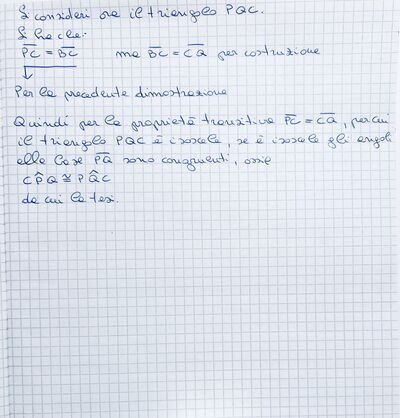 Si consideri ora il triangolo PQC.
Si ha che:
PC = BC ma BC = CQ per costruzione
↓
Per la precedente dimostrazione
Quindi per la proprietà transitiva PC = CQ, per cui
il triangolo PQC è isoscele, se è isoscele gli angoli
alla base PQ sono congruenti, ossia
CP̂Q ≅ PQ̂C
da cui la tesi.